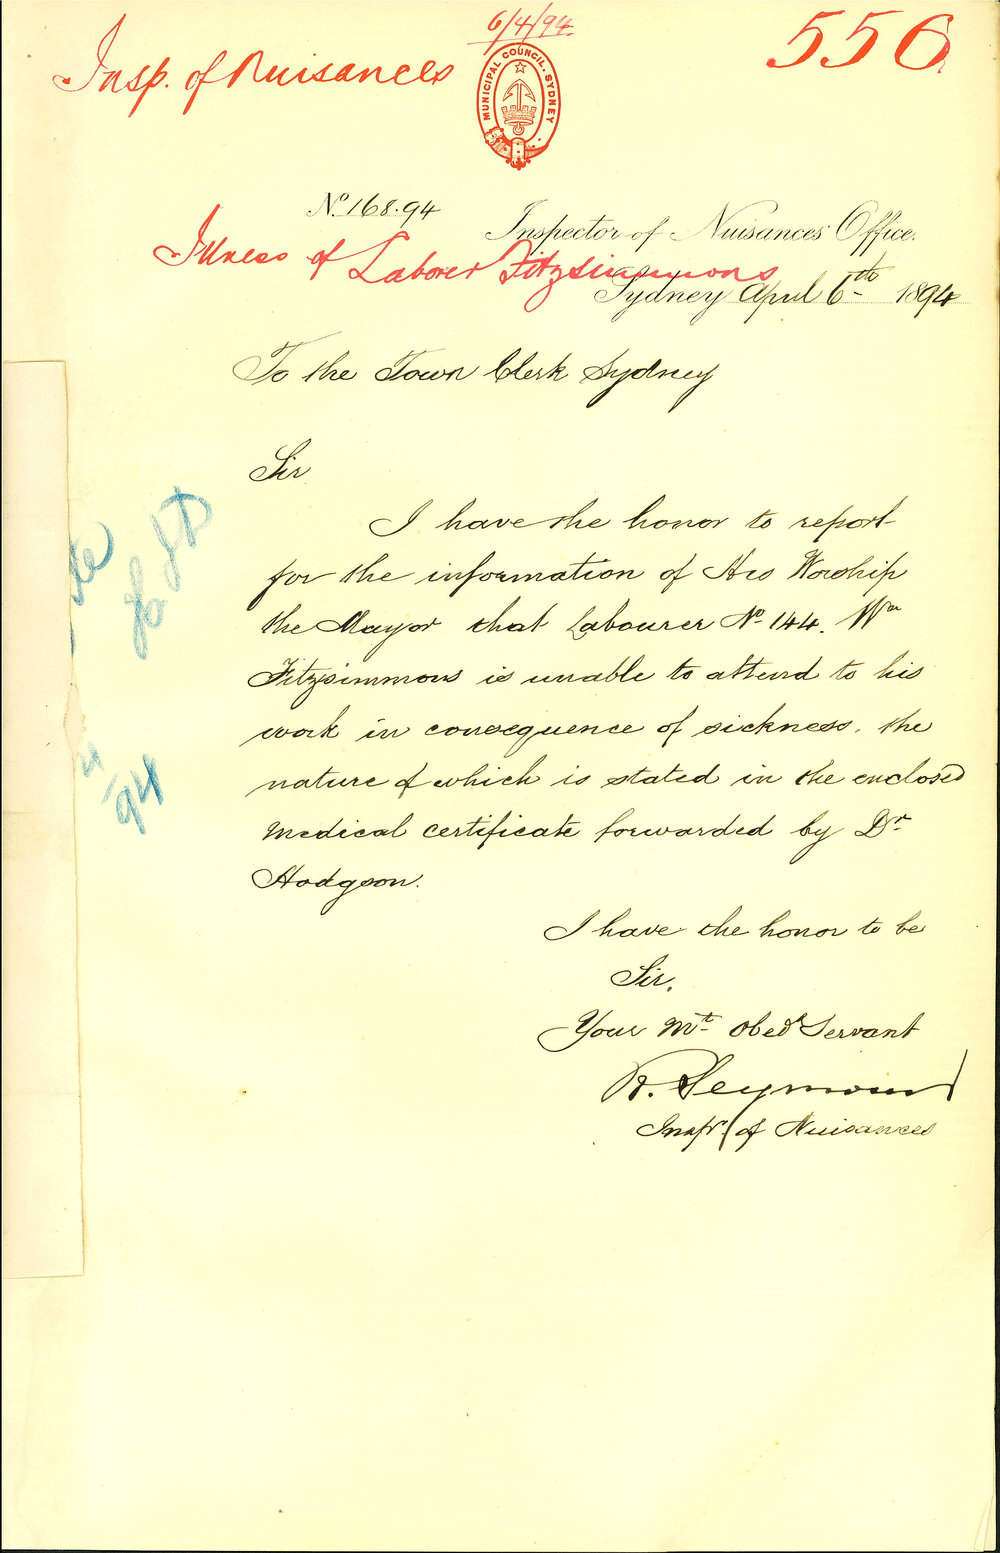 6/4/94.
556
Insp. of Nuisances
MUNICIPAL COUNCIL. SYDNEY
No. 168.94
Inspector of Nuisances' Office.
Illness of Laborer Fitzsimmons
Sydney April 6th 1894
To the Town Clerk Sydney
Sir
I have the honor to report
for the information of His Worship
the Mayor that Labourer No 144. Wm
Fitzsimmons is unable to attend to his
work in consequence of sickness. the
nature of which is stated in the enclosed
Medical certificate forwarded by Dr
Hodgson.
I have the honor to be
Sir.
Your Mt Obedt Servant
R. Seymour
Inspr. of Nuisances
4
/94